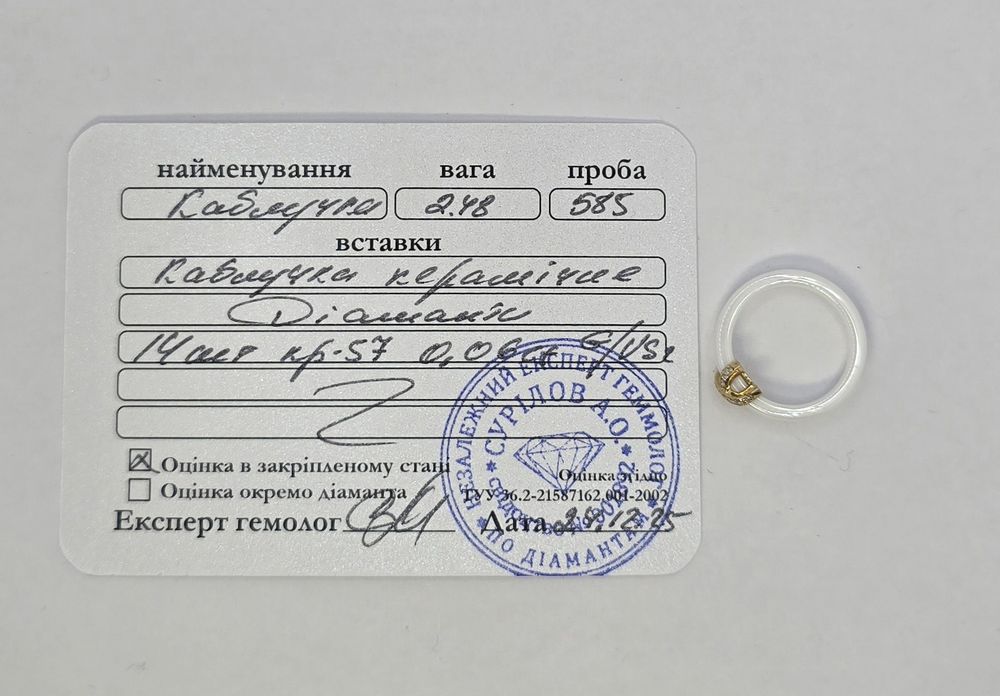 найменування вага проба
Каблучка 2.48 585
вставки
Каблучка керамічне
Діаманти
14 шт кр-57 0,06 G/VS1
Оцінка в закріпленому стані
Оцінка окремо діаманта
Оцінка згідно
ТУУ 36.2-21587162.001-2002
Експерт гемолог Дата 29.12.25
НЕЗАЛЕЖНИЙ ЕКСПЕРТ ГЕММОЛОГ
ПО ДІАМАНТАМ
СУРІЛОВ А.О.
свідоцтво №